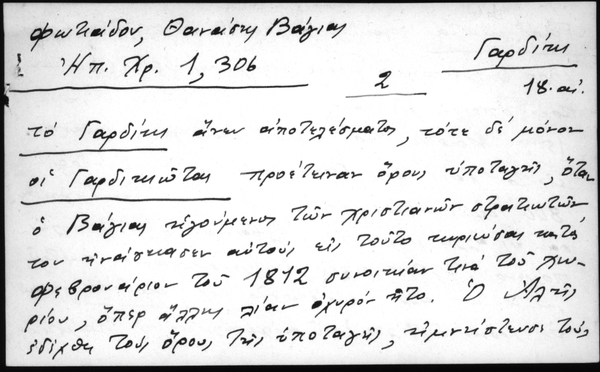 Φωτιάδου, Θανάσης Βάγιας
Ἠπ. Χρ. 1, 306
2
Γαρδίκι
18. αἰ.
τό Γαρδίκι ἄνευ ἀποτελέσματος, τότε δέ μόνον
οἱ Γαρδικιῶται προέτειναν ὅρους ὑποταγῆς, ὅταν
ὁ Βάγιας ἡγούμενος τῶν χριστιανῶν στρατιωτῶν
τον ἠνάγκασεν αὐτούς εἰς τοῦτο κυριεύσας κατά
Φεβρουάριον τοῦ 1812 συνοικίαν τινά τοῦ χω-
ρίου, ὅπερ ἄλλως λίαν ὀχυρόν ἦτο. Ὁ Ἀλῆς
ἐδέχθη τούς ὅρους τῆς ὑποταγῆς, τούς